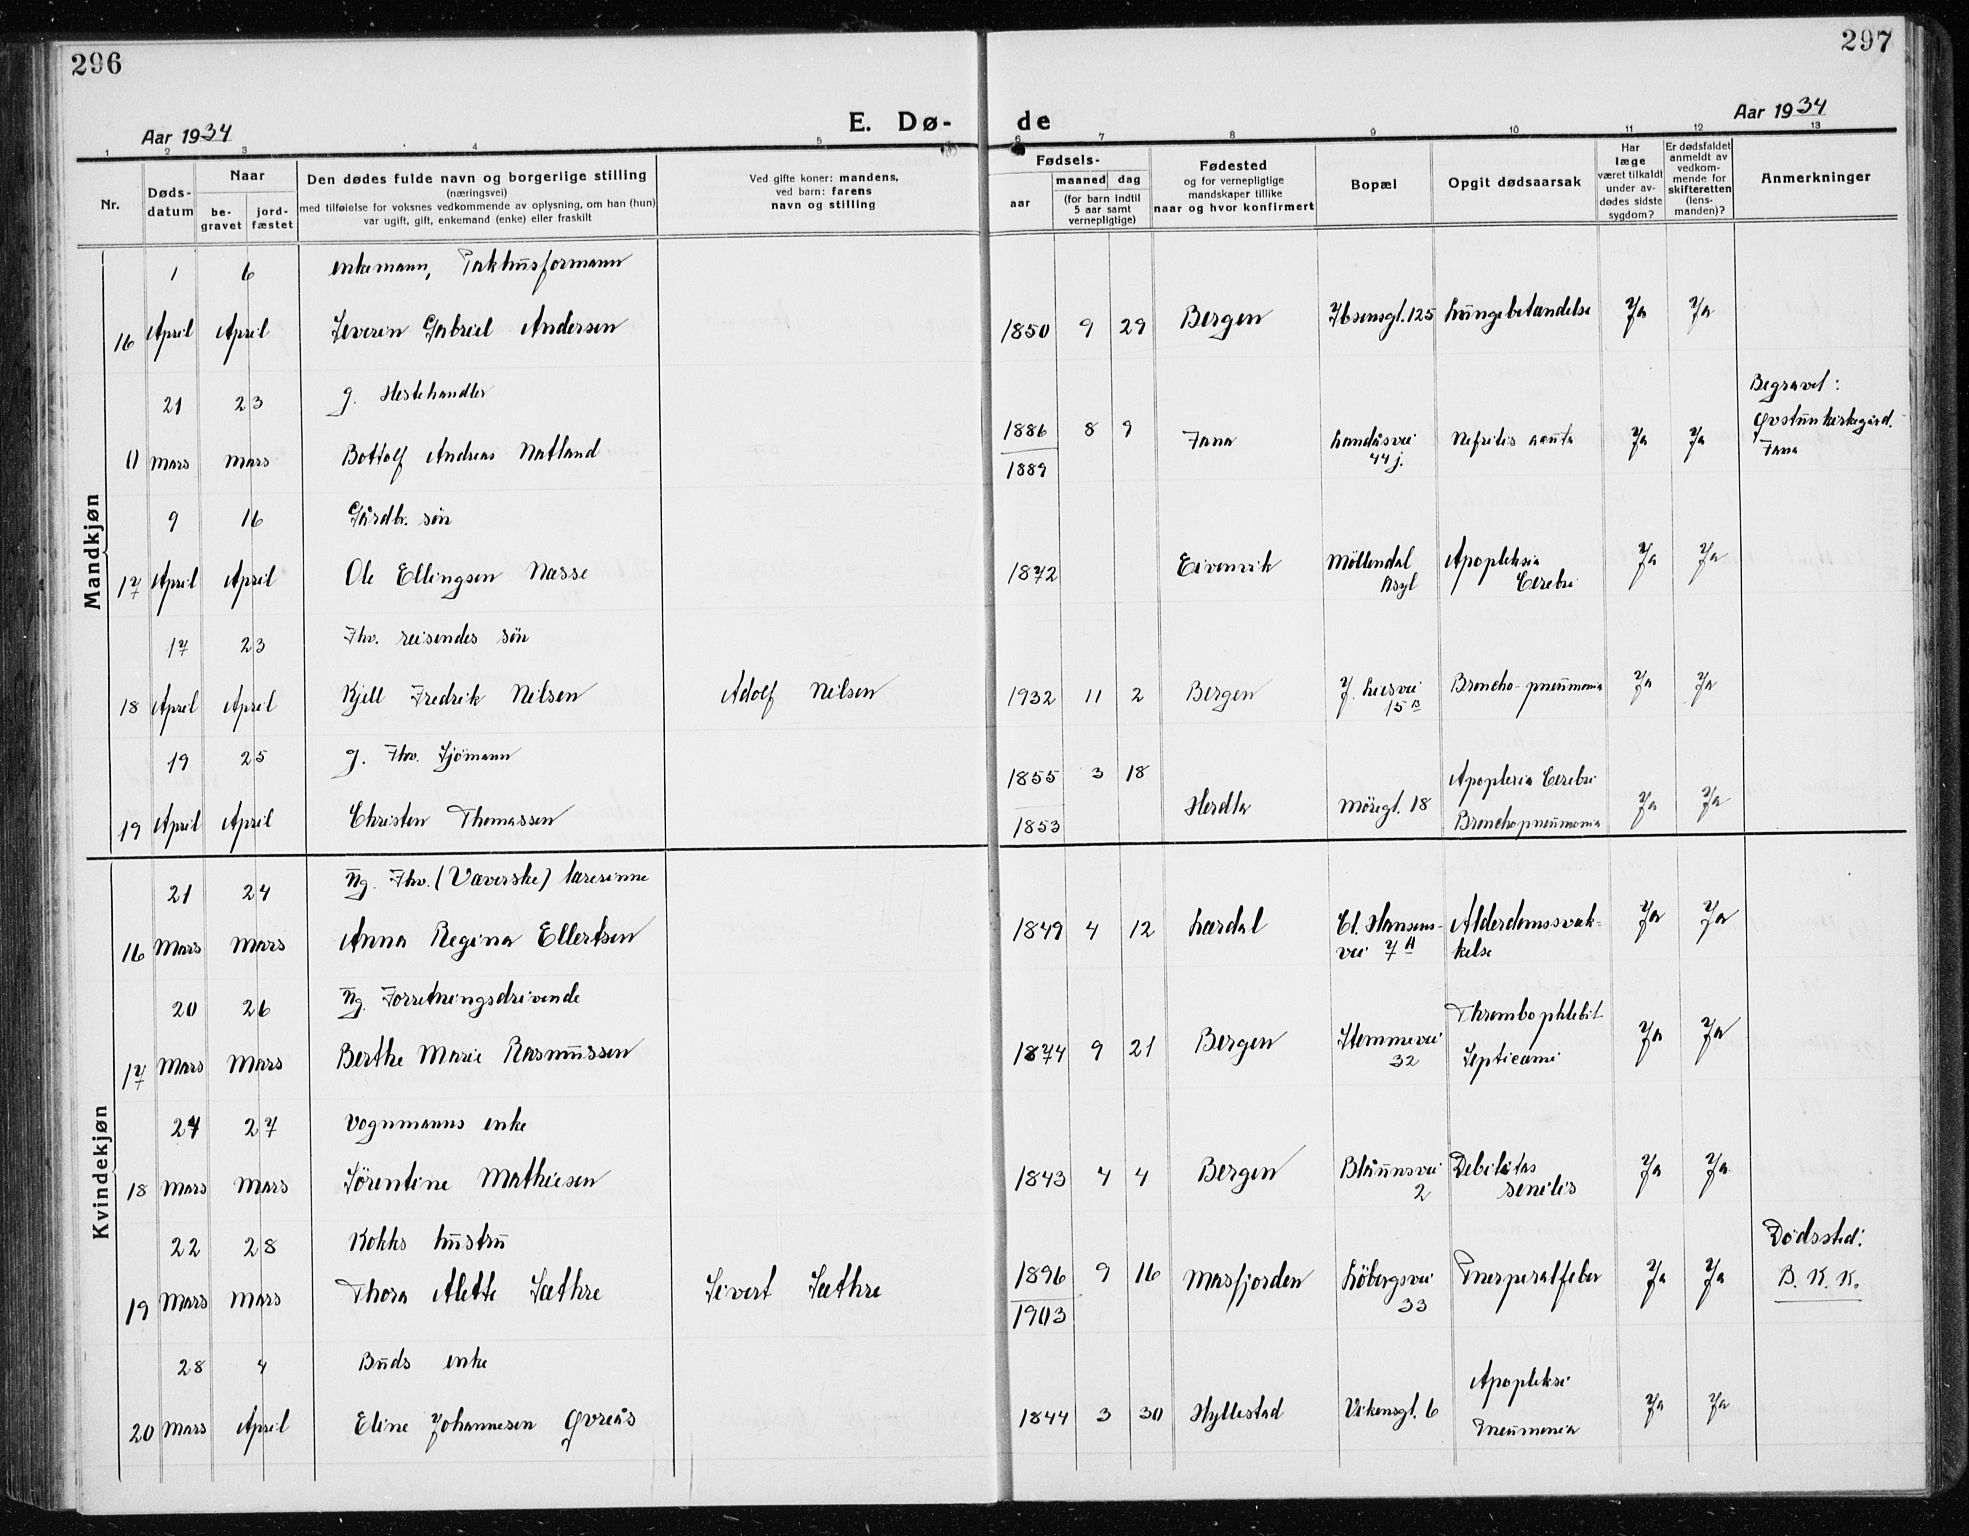 296
297
E. Dø- de
Aar 1934
Aar 1934
1 2 3 4 5 6 7 8 9 10 11 12 13
Nr.
Døds-
datum
Naar
be-
gravet
jord-
fæstet
Den dødes fulde navn og borgerlige stilling
(næringsvei)
med tilføielse for voksnes vedkommende av oplysning, om han (hun)
var ugift, gift, enkemand (enke) eller fraskilt
Ved gifte koner: mandens,
ved barn: farens
navn og stilling
Fødsels-
aar
maaned dag
(for barn indtil
5 aar samt
vernepligtige)
Fødested
og for vernepligtige
mandskaper tillike
naar og hvor konfirmert
Bopæl
Opgit dødsaarsak
Har
læge
været tilkaldt
under av-
dødes sidste
sygdom?
Er dødsfaldet
anmeldt av
vedkom-
mende for
skifteretten
(lens-
manden)?
Anmerkninger
Mandkjøn
1 6 enkemann, Pakhusformann
16 April April Severin Gabriel Andersen 1850 9 29 Bergen Ibsensgt. 125 Lungebetandelse Ja Ja
21 23 g. Hestehandler
11 Mars Mars Bottolf Andreas Natland 1886 8 9 Fana Landåsvei Nefritis acuta Ja Ja
1889 44 j.
Begravet:
Øvstun kirkegård.
Fana
9 16 Gårdbr. søn
17 April April Ole Ellingsen Nasse 1872 Eivenvik Möllendal Apopleksia Ja Ja
Asyl Cerebri
17 23 Fhv. reisendes søn
18 April April Kjell Fredrik Nilsen Adolf Nilsen 1932 11 2 Bergen J. Liesvei Broncho-pneumonia Ja Ja
15 B
19 25 g. Fhv. Sjömann
19 April April Christen Thomassen 1855 3 18 Herdla Möregt. 18 Apoplexia Cerebri Ja Ja
1853 Bronchopneumonia
Kvindekjøn
21 24 Ug. Fhv. (Væverske) lærerinne
16 Mars Mars Anna Regina Ellertsen 1849 4 12 Lærdal Cl. Hansens- Alderdomssvæk- Ja Ja
vei 7 A kelse
20 26 Ug. Forretningsdrivende
17 Mars Mars Berthe Marie Rasmussen 1874 9 21 Bergen Stemmevei Thrombophlebit Ja Ja
32 Septicæmi
24 27 Vognmanns enke
18 Mars Mars Sørentine Mathiesen 1843 4 4 Bergen Blåunsvei Debilitas Ja Ja
2 senilis
22 28 Kokks hustru
19 Mars Mars Thora Alette Sæthre Sivert Sæthre 1896 9 16 Masfjorden Löbergsvei Puerperalfeber Ja Ja
1903 33
Dödssted:
B. K. K.
28 4 Buds enke
20 Mars April Eline Johannesen Øvreås 1844 3 30 Hyllestad Vikensgt. 6 Apopleksi Ja Ja
Pneumonia